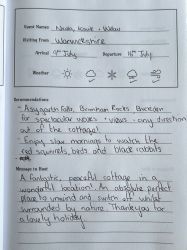 Guest Names Nicola, Kowe + Willow
Visiting From Warwickshire
Arrival 9th July Departure 16th July
Weather
Recommendations
- Aysgarth Falls, Brimham Rocks, Buckden
for spectacular walks + views - any direction
out of the cottage!
- Enjoy slow mornings to watch the
red squirrels, birds and black rabbits
Message to Host
A fantastic, peaceful cottage in a
wonderful location! An absolute perfect
place to unwind and switch off whilst
surrounded by nature. Thankyou for
a lovely holiday